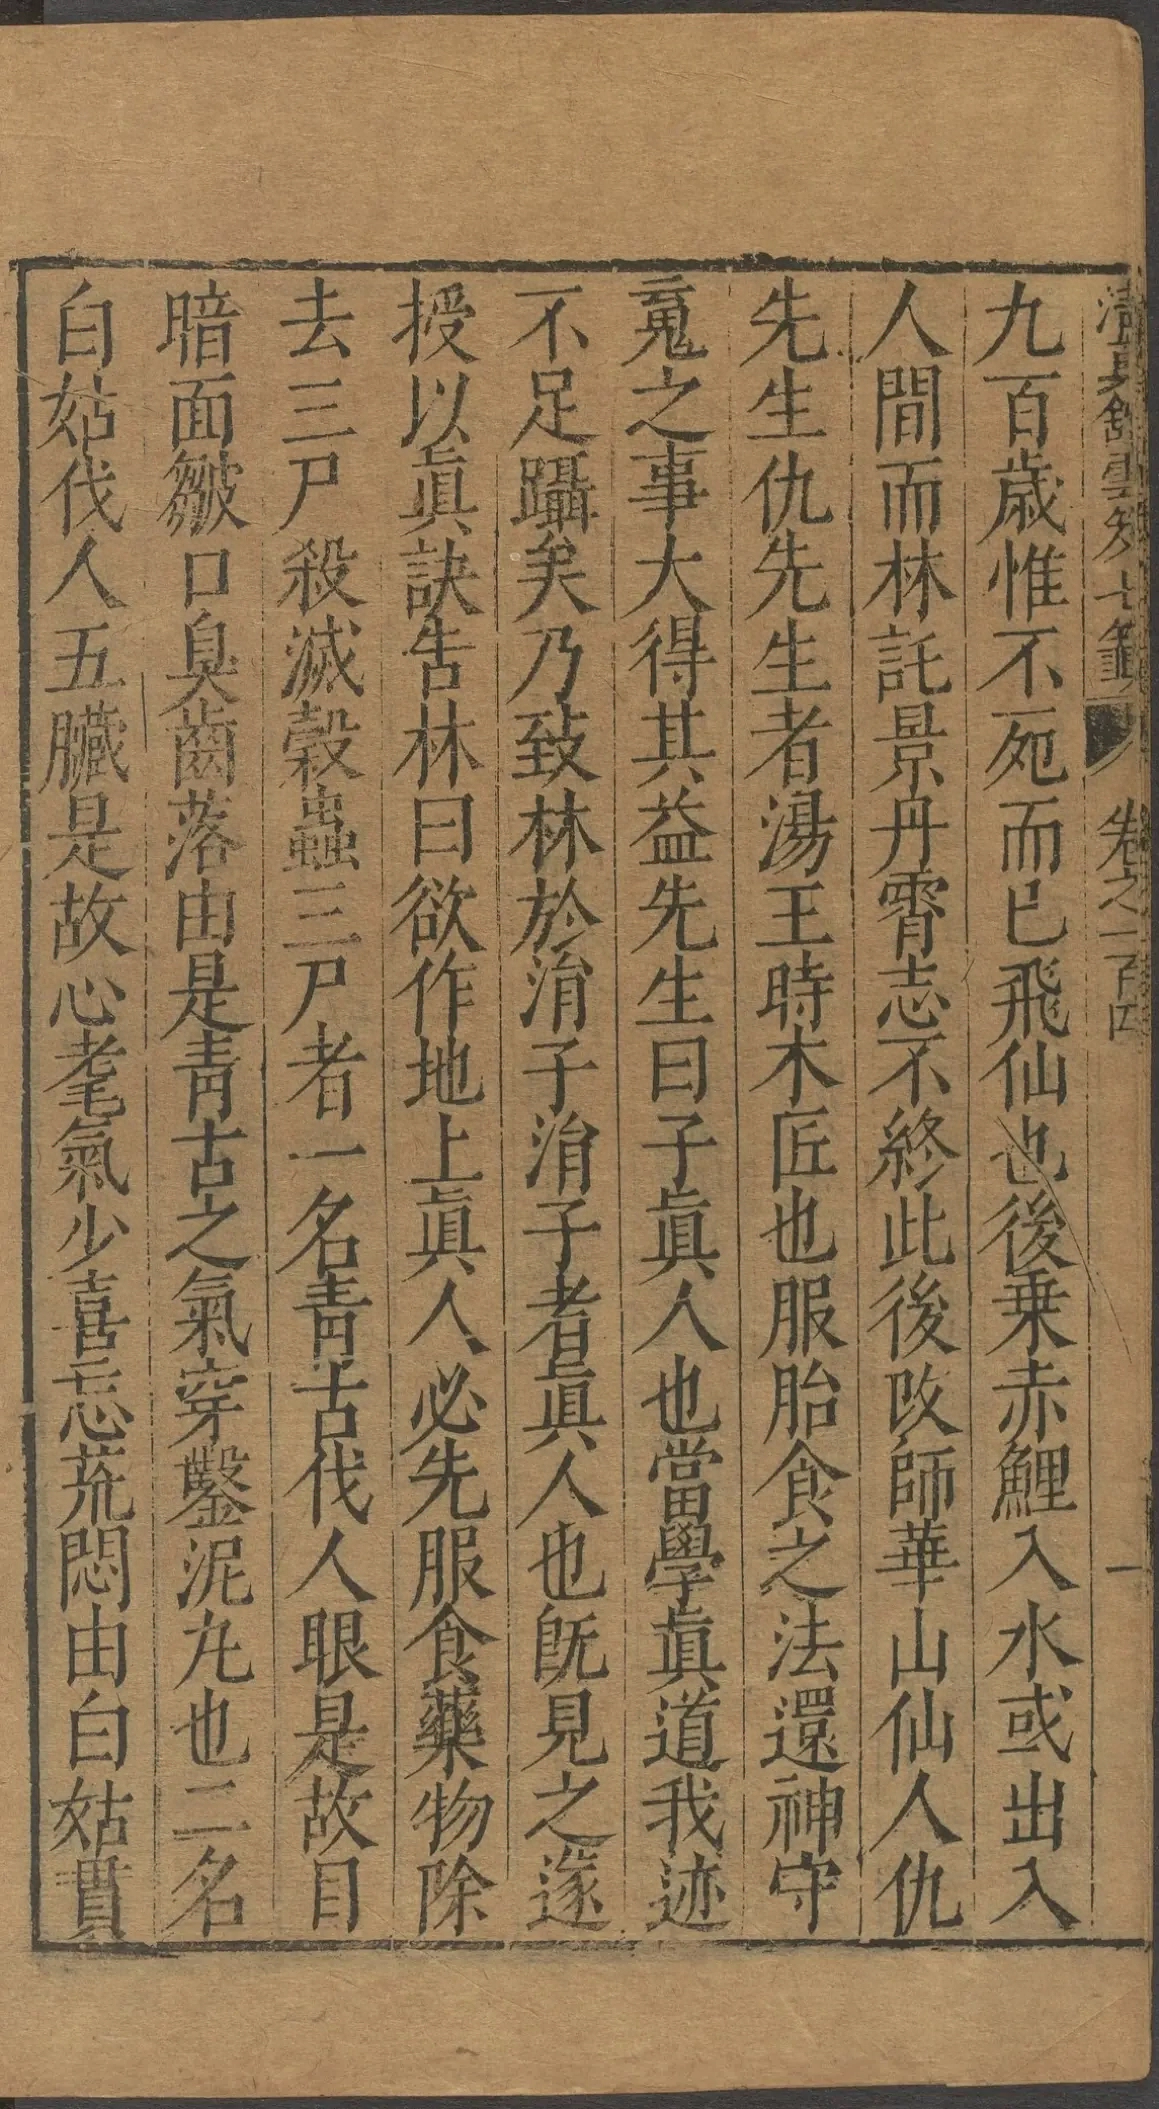 清真館雲笈七籤 卷之一百四 一
九百歲惟不死而已飛仙也後乗赤鯉入水或出入
人間而林託景丹霄志不終此後改師華山仙人仇
先生仇先生者湯王時木匠也服胎食之法還神守
䰟之事大得其益先生曰子眞人也當學眞道我迹
不足躡矣乃致林於涓子涓子者眞人也旣見之遂
授以眞訣告林曰欲作地上眞人必先服食藥物除
去三尸殺滅穀蟲三尸者一名靑古伐人眼是故目
暗面皺口臭齒落由是靑古之氣穿鑿泥丸也二名
白姑伐人五臟是故心耄氣少喜忘荒悶由白姑貫